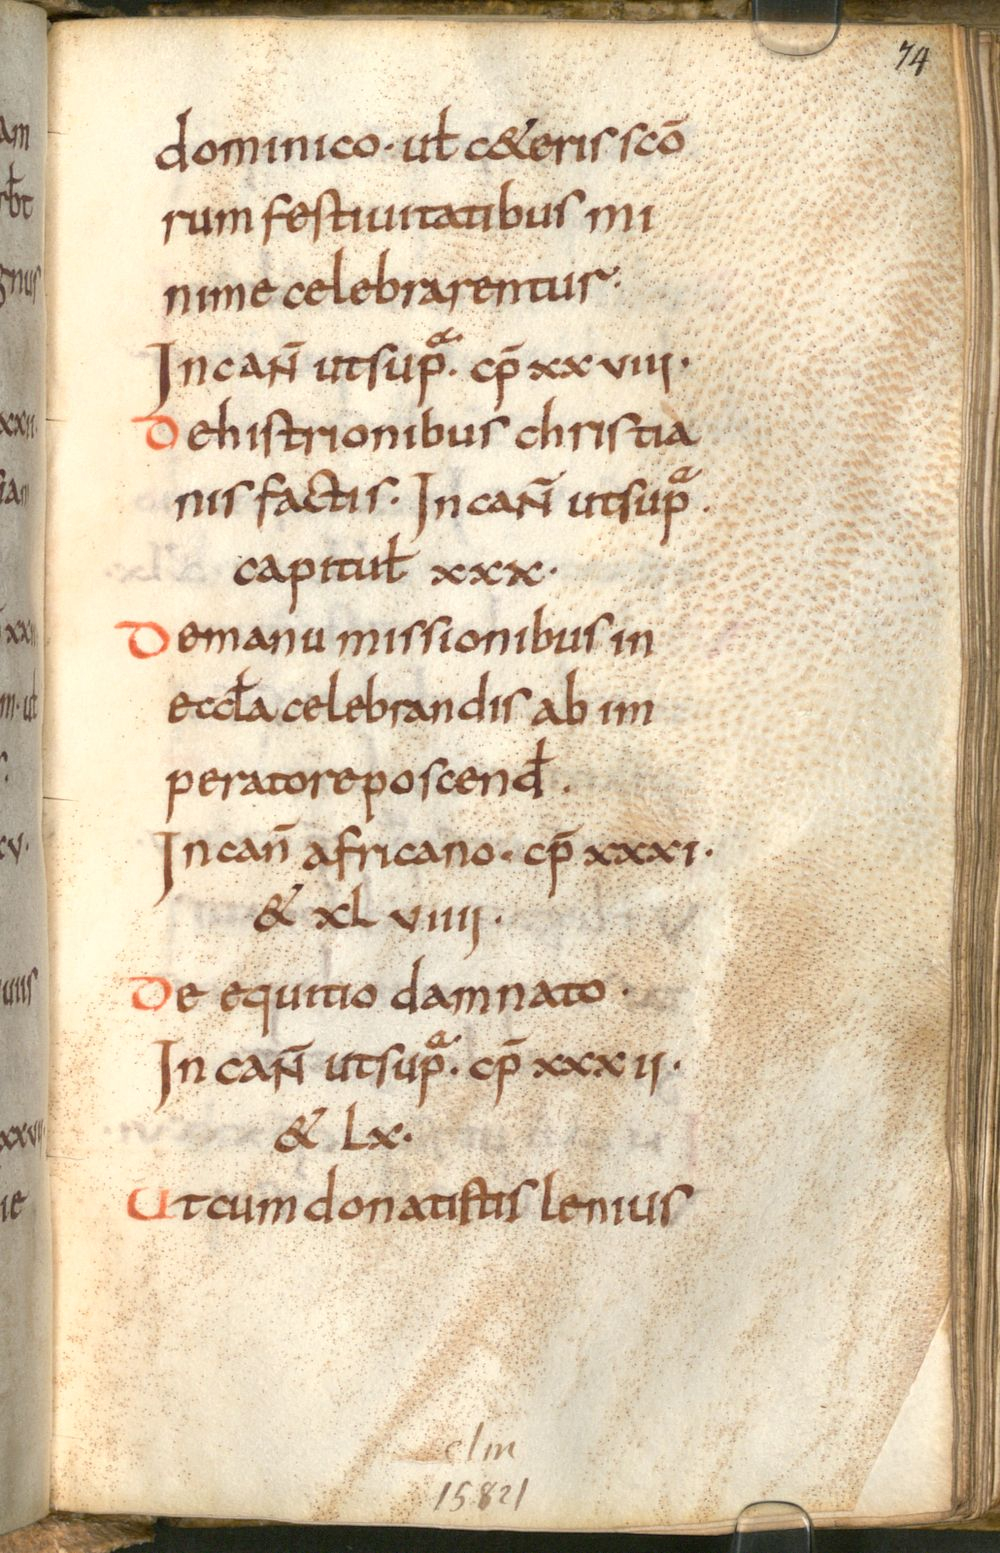 74
dominico · ul̄ c&eris scō
rum festiuitatibus mi
nime celebrarentur ·
In cañ ut supᵃ · cp̄ xxviii ·
De histrionibus christia
nis factis · In cañ ut supᵃ ·
capitul̄ xxx ·
De manu missionibus in
eccl̄a celebrandis ab im
peratore poscend̄ ·
In cañ africano · cp̄ xxxi ·
& xl viiij ·
De equitio damnato ·
In cañ ut supᵃ · cp̄ xxxii ·
& lx ·
Ut cum donatistis lenius
clm
15821